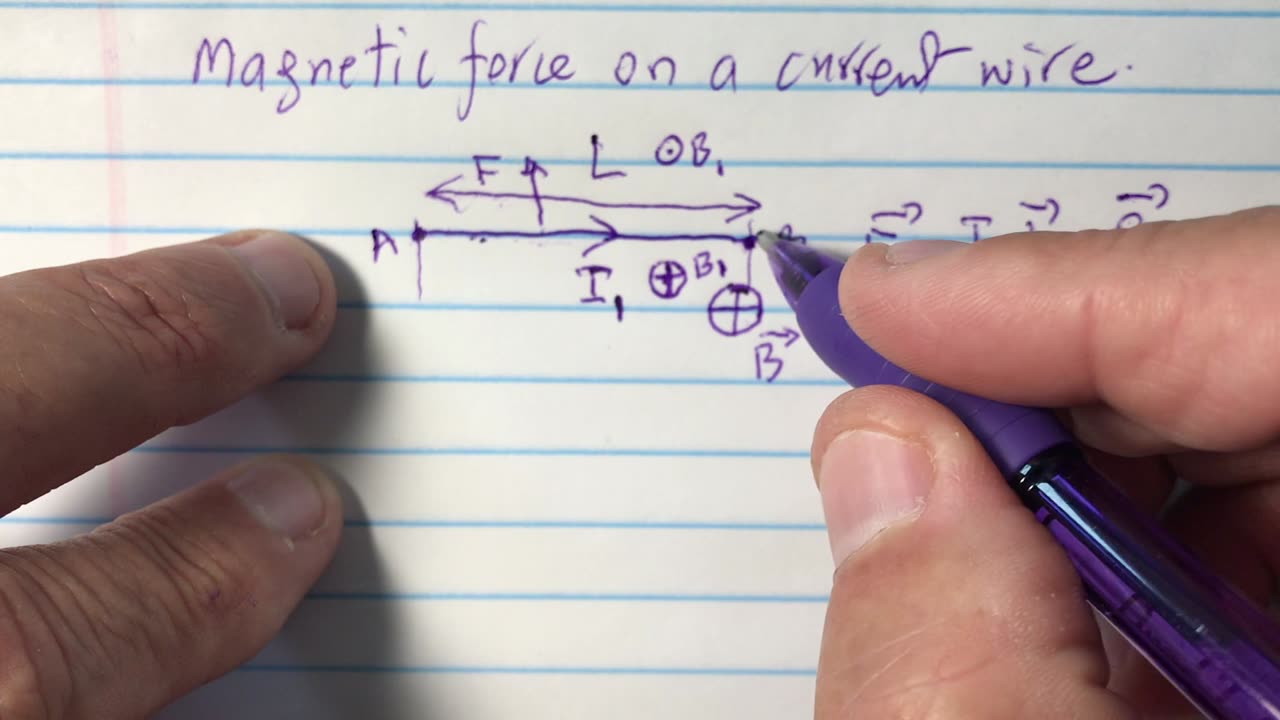 Magnetic force on a current wire.
F L ⊙B₁
A
I₁ ⊕ B₁
⊕
B⃗